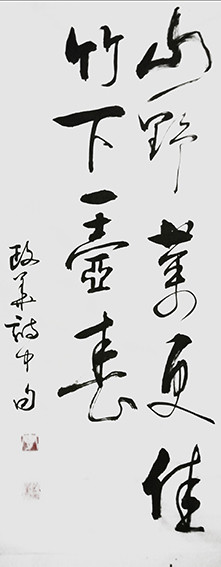 山野更佳
竹下一壺春
政華詩中句